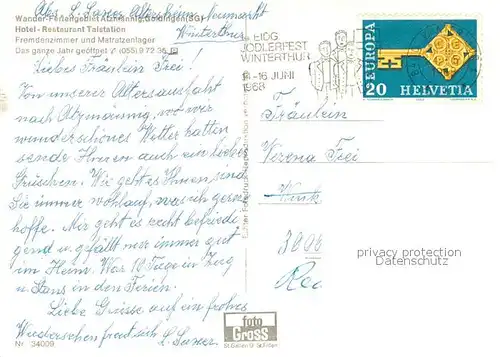 Abs. L. Saxer Altersheim Neumarkt
Winterthur
Wander-Feriengebiet Atzmännig, Goldingen (SG)
Hotel-Restaurant Talstation
Fremdenzimmer und Matratzenlager
Das ganze Jahr geöffnet ✆ (055) 9 72 36 P
Liebes Fräulein Frei!
Von unserer Altersausfahrt
nach Atzmännig, wo wir
wunderschönes Wetter hatten
sende Ihnen auch ein liebes
Grüschen. Wie geht es Ihnen, sind
Sie immer wohlauf, was ich gerne
hoffe. Mir geht es recht befriedi
gend u. gefällt mir immer gut
im Heim. War 10 Tage in Zerg
u. Stans in den Ferien.
Liebe Grüsse auf ein frohes
Wiedersehen freut sich L. Saxer
Nr. 34009
EIDG
JODLERFEST
WINTERTHUR
14-16 JUNI
1968
EUROPA
20 HELVETIA
Fräulein
Verena Frei
privacy protection
Datenschutz
foto
Gross
St. Gallen